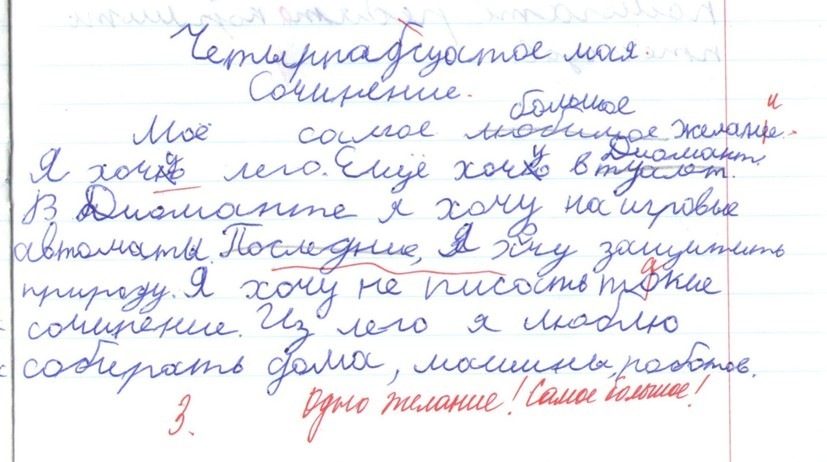 Четырнадцатое мая.
Сочинение.
большое
Моё самое любимое желание.
и
Я хочу лего. Ещё хочу в туалет.
Диамант.
В Диаманте я хочу на игровые
автоматы. Последние, Я хочу защитить
природу. Я хочу не писать такие
сочинение. Из лего я люблю
собирать дома, машины, роботов.
3. Одно желание! Самое большое!